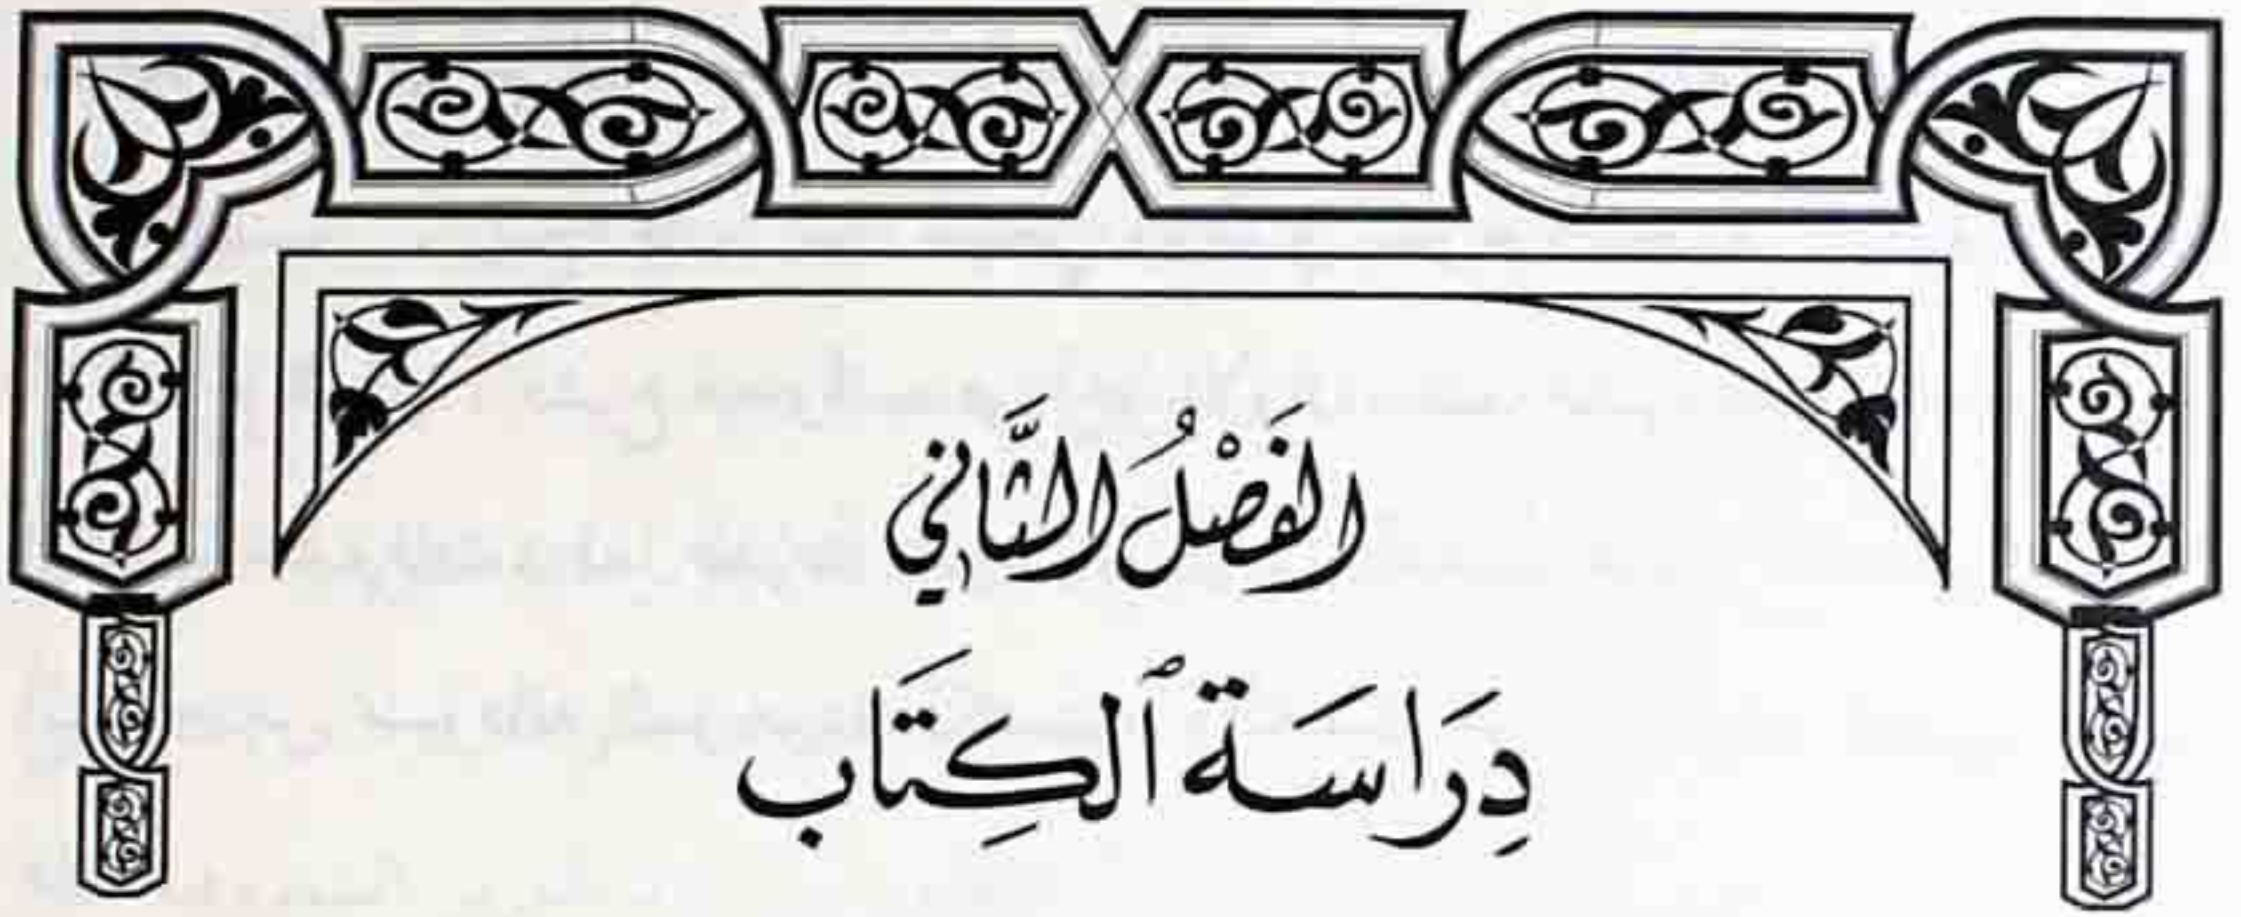 الفَصْلُ الثَّاني
دِرَاسَة ٱلكِتَاب